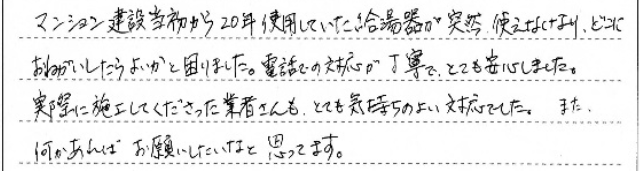 マンション建設当初から20年使用していた給湯器が突然使えなくなり、どこに
おねがいしたらよいかと困りました。電話での対応が丁寧で、とても安心しました。
実際に施工してくださった業者さんも、とても気持ちのよい対応でした。また、
何かあれば お願いしたいなと思ってます。